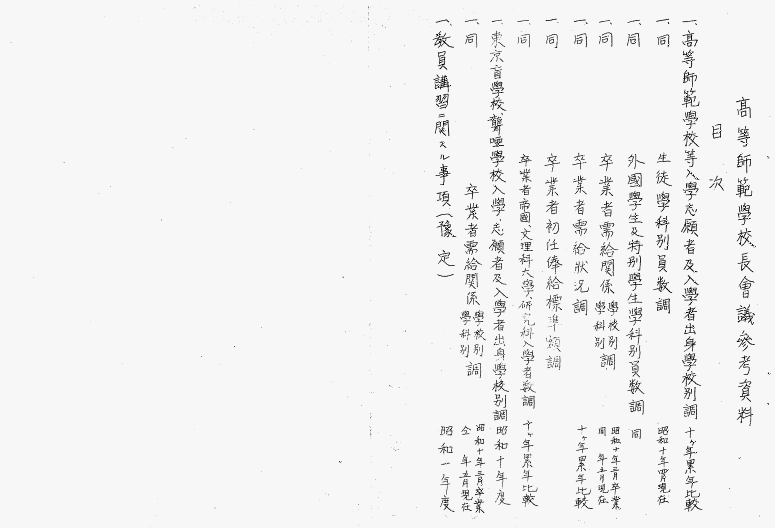 高等師範學校長會議參考資料
目次
一、高等師範學校等入學志願者及入學者出身學校別調 十ヶ年累年比較
一、同 生徒學科別員數調 昭和十年四月現在
一、同 外國學生及特別學生學科別員數調 同
一、同 卒業者需給關係學校別學科別調 昭和十年三月卒業同年五月現在
一、同 卒業者需給狀況調 十ヶ年累年比較
一、同 卒業者初任俸給標準額調
一、同 卒業者帝國、文理科大學、研究科入學者數調 十ヶ年累年比較
一、東京盲學校、聾啞學校入學志願者及入學者出身學校別調 昭和十年度
一、同 卒業者需給關係學校別學科別調 昭和十年三月卒業仝年五月現在
一、教員講習ニ關スル事項(豫定) 昭和一年度